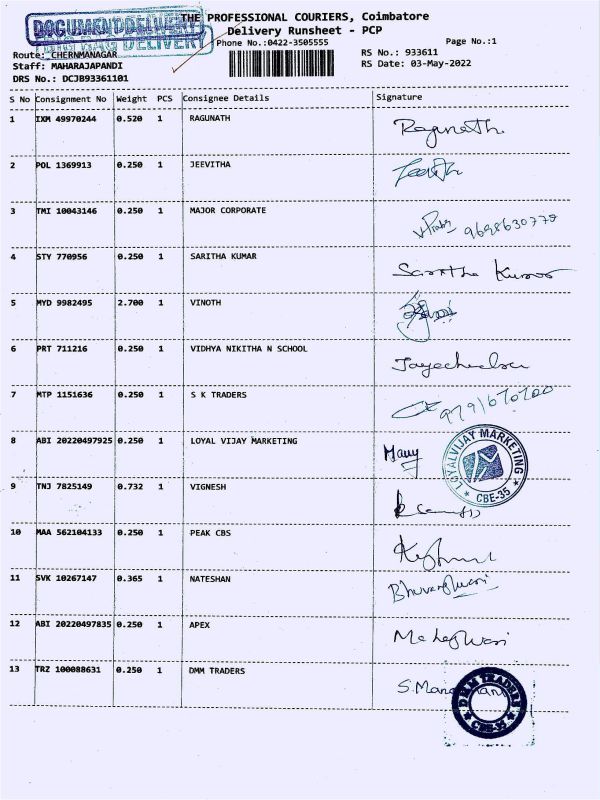 DOCUMENT DELIVERY
BIG BAG DELIVERY
THE PROFESSIONAL COURIERS, Coimbatore
Delivery Runsheet - PCP
Phone No.:0422-3505555 Page No.:1
Route: CHERNMANAGAR RS No.: 933611
Staff: MAHARAJAPANDI RS Date: 03-May-2022
DRS No.: DCJB93361101
S No Consignment No Weight PCS Consignee Details Signature
1 IXM 49970244 0.520 1 RAGUNATH Ragunath
2 POL 1369913 0.250 1 JEEVITHA
3 TMI 10043146 0.250 1 MAJOR CORPORATE
4 STY 770956 0.250 1 SARITHA KUMAR Saritha Kumar
5 MYD 9982495 2.700 1 VINOTH
6 PRT 711216 0.250 1 VIDHYA NIKITHA N SCHOOL
7 MTP 1151636 0.250 1 S K TRADERS
8 ABI 20220497925 0.250 1 LOYAL VIJAY MARKETING Many
LOYALVIJAY MARKETING
* CBE-35 *
9 TNJ 7825149 0.732 1 VIGNESH
10 MAA 562104133 0.250 1 PEAK CBS
11 SVK 10267147 0.365 1 NATESHAN Bhuvaneshwari
12 ABI 20220497835 0.250 1 APEX Maheshwari
13 TRZ 100088631 0.250 1 DMM TRADERS
DMM TRADERS
* CBE-35 *